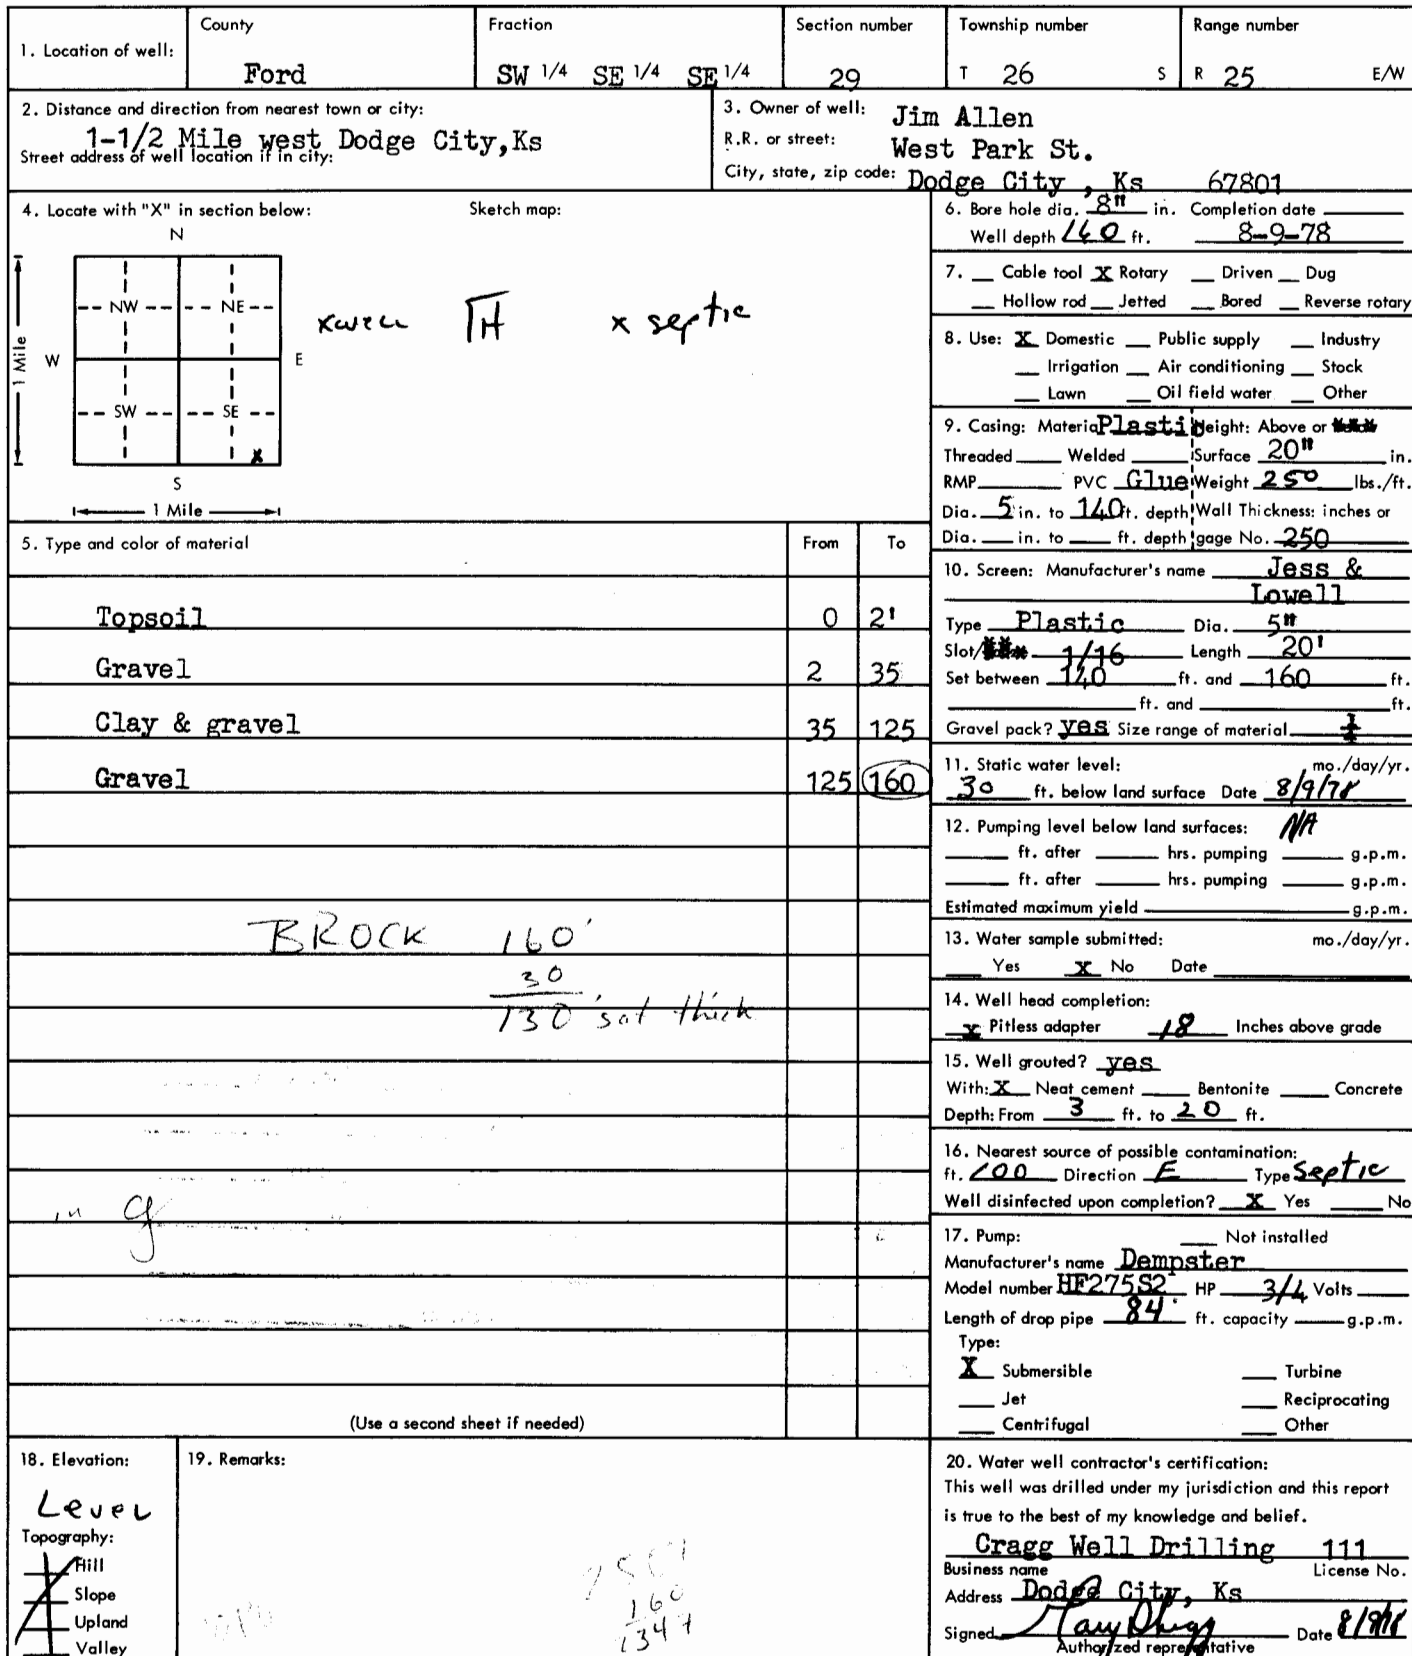 1. Location of well:
County
Ford
Fraction
SW 1/4 SE 1/4 SE 1/4
Section number
29
Township number
T 26 S
Range number
R 25 E/W
2. Distance and direction from nearest town or city:
1-1/2 Mile west Dodge City,Ks
Street address of well location if in city:
3. Owner of well: Jim Allen
R.R. or street: West Park St.
City, state, zip code: Dodge City , Ks 67801
4. Locate with "X" in section below:
Sketch map:
N
NW NE
W E
SW SE
X
S
1 Mile
1 Mile
xwell H x septic
5. Type and color of material From To
Topsoil 0 2'
Gravel 2 35
Clay & gravel 35 125
Gravel 125 160
BROCK 160'
30
130' sat thick
(Use a second sheet if needed)
6. Bore hole dia. 8" in. Completion date
Well depth 160 ft. 8-9-78
7. Cable tool X Rotary Driven Dug
Hollow rod Jetted Bored Reverse rotary
8. Use: X Domestic Public supply Industry
Irrigation Air conditioning Stock
Lawn Oil field water Other
9. Casing: Material Plastic Height: Above or
Threaded Welded Surface 20" in.
RMP PVC Glue Weight 250 lbs./ft.
Dia. 5 in. to 140 ft. depth Wall Thickness: inches or
Dia. in. to ft. depth gage No. 250
10. Screen: Manufacturer's name Jess &
Lowell
Type Plastic Dia. 5"
Slot/ 1/16 Length 20'
Set between 140 ft. and 160 ft.
ft. and ft.
Gravel pack? yes Size range of material
11. Static water level: mo./day/yr.
30 ft. below land surface Date 8/9/78
12. Pumping level below land surfaces: NA
ft. after hrs. pumping g.p.m.
ft. after hrs. pumping g.p.m.
Estimated maximum yield g.p.m.
13. Water sample submitted: mo./day/yr.
Yes X No Date
14. Well head completion:
X Pitless adapter 18 Inches above grade
15. Well grouted? yes
With: X Neat cement Bentonite Concrete
Depth: From 3 ft. to 20 ft.
16. Nearest source of possible contamination:
ft. 100 Direction E Type Septic
Well disinfected upon completion? X Yes No
17. Pump: Not installed
Manufacturer's name Dempster
Model number HF275S2 HP 3/4 Volts
Length of drop pipe 84' ft. capacity g.p.m.
Type:
X Submersible Turbine
Jet Reciprocating
Centrifugal Other
18. Elevation:
Level
Topography:
Hill
Slope
Upland
Valley
19. Remarks:
160
2347
20. Water well contractor's certification:
This well was drilled under my jurisdiction and this report
is true to the best of my knowledge and belief.
Cragg Well Drilling 111
Business name License No.
Address Dodge City, Ks
Signed Date 8/9/78
Authorized representative